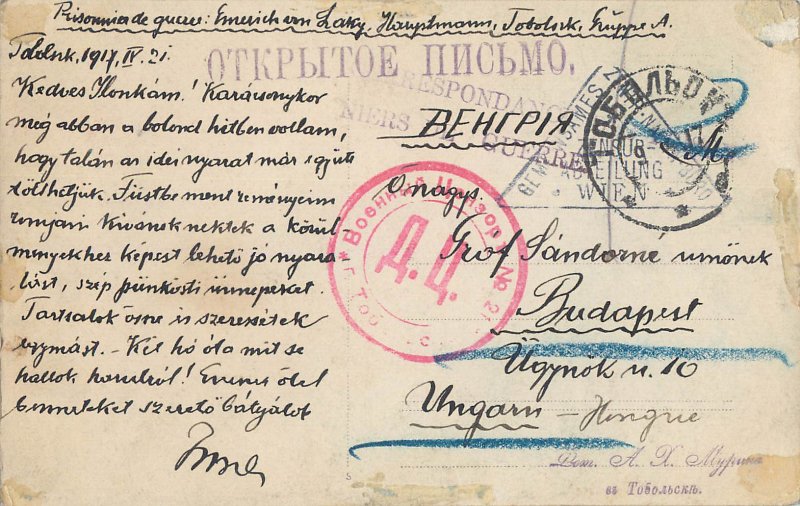 Prisonnier de guerre: Emerich von Laky, Hauptmann, Tobolsk, Gruppe A.
Tobolsk, 1917, IV. 21.
ОТКРЫТОЕ ПИСЬМО.
CORRESPONDANCE
PRISONNIERS DE GUERRE
Kedves Ilonkám! Karácsonykor
még abban a bolond hitben voltam,
hogy talán az idei nyarat már együtt
tölthetjük. Füstbe ment reményeim
romjain kivánok nektek a körül-
ményekhez képest lehető jó nyara-
lást, szép pünkösti ünnepeket.
Tartsatok össze is szeressétek
egymást. – Két hó óta mit se
hallok honról! Ezer ölel
benneteket szerető bátyátok
Imre
ВЕНГРІЯ
ТОБОЛЬСК
ZENSUR-
ABTEILUNG
WIEN
Военный Цензоръ № 21
Д.Ц.
г. Тоб
Őnagys.
Gróf Sándorné urnőnek
Budapest
Ügynök u. 10
Ungarn – Hongrie
А. Х. Мурина
въ Тобольскѣ.